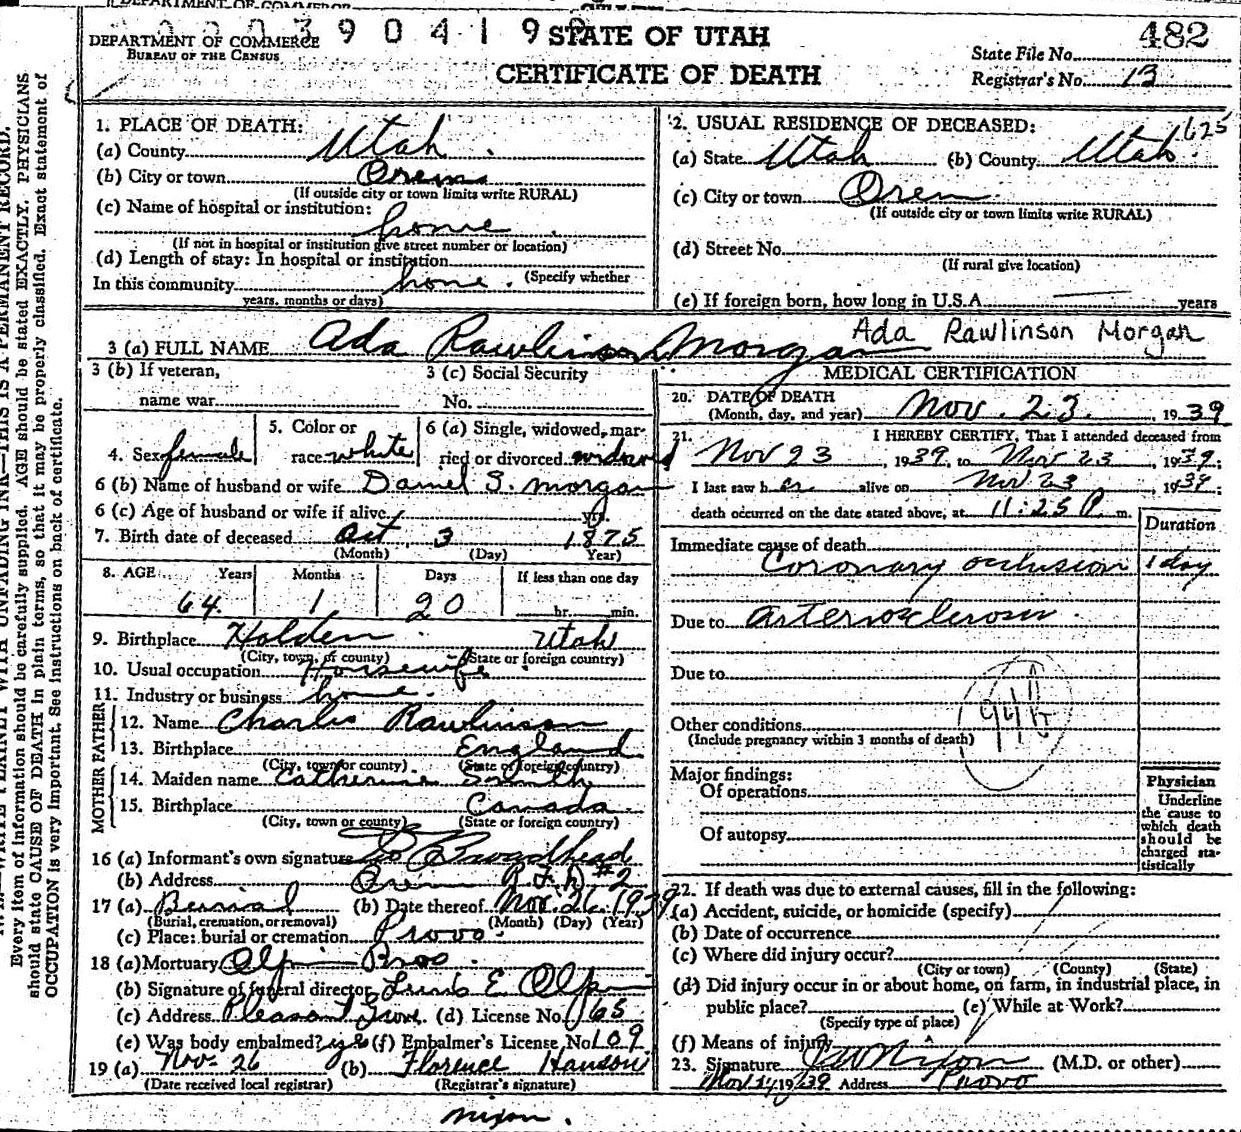 DEPARTMENT OF COMMERCE
0390419
STATE OF UTAH
482
DEPARTMENT OF COMMERCE
BUREAU OF THE CENSUS
State File No.
CERTIFICATE OF DEATH
Registrar's No. 13
Every item of information should be carefully supplied. AGE should be stated EXACTLY. PHYSICIANS
should state CAUSE OF DEATH in plain terms, so that it may be properly classified. Exact statement of
OCCUPATION is very important. See instructions on back of certificate.
1. PLACE OF DEATH:
(a) County Utah
(b) City or town Orem
(If outside city or town limits write RURAL)
(c) Name of hospital or institution:
home
(If not in hospital or institution give street number or location)
(d) Length of stay: In hospital or institution
(Specify whether
In this community home
years, months or days)
2. USUAL RESIDENCE OF DECEASED: 625
(a) State Utah (b) County Utah
(c) City or town Orem
(If outside city or town limits write RURAL)
(d) Street No.
(If rural give location)
(e) If foreign born, how long in U.S.A. years
3 (a) FULL NAME Ada Rawlinson Morgan Ada Rawlinson Morgan
3 (b) If veteran,
name war
3 (c) Social Security
No.
4. Sex female
5. Color or
race white
6 (a) Single, widowed, mar-
ried or divorced widowed
6 (b) Name of husband or wife Daniel S. Morgan
6 (c) Age of husband or wife if alive yrs.
7. Birth date of deceased Oct 3 1875
(Month) (Day) Year)
8. AGE Years Months Days If less than one day
64 1 20 hr. min.
9. Birthplace Holden Utah
(City, town, or county) (State or foreign country)
10. Usual occupation Housewife
11. Industry or business home
FATHER
12. Name Charles Rawlinson
13. Birthplace England
(City, town or county) (State or foreign country)
MOTHER
14. Maiden name Catherine Smith
15. Birthplace Canada
(City, town or county) (State or foreign country)
16 (a) Informant's own signature Broadhead
(b) Address Orem R.F.D. #2
17 (a) Burial (b) Date thereof Nov. 26. 1939
(Burial, cremation, or removal) (Month) (Day) (Year)
(c) Place: burial or cremation Provo
18 (a) Mortuary Olpin Bros
(b) Signature of funeral director E Olpin
(c) Address Pleasant Grove (d) License No. 65
(e) Was body embalmed? yes (f) Embalmer's License No. 109
19 (a) Nov. 26 (b) Florence Hanson
(Date received local registrar) (Registrar's signature)
MEDICAL CERTIFICATION
20. DATE OF DEATH
(Month, day, and year) Nov. 23. 1939
21. I HEREBY CERTIFY, That I attended deceased from
Nov 23, 1939, to Nov 23, 1939;
I last saw her alive on Nov 23, 1939;
death occurred on the date stated above, at 11:25 P. m.
Duration
Immediate cause of death
Coronary occlusion 1 day
Due to arteriosclerosis
Due to
94b
Other conditions
(Include pregnancy within 3 months of death)
Major findings:
Of operations
Of autopsy
Physician
Underline
the cause to
which death
should be
charged sta-
tistically
22. If death was due to external causes, fill in the following:
(a) Accident, suicide, or homicide (specify)
(b) Date of occurrence
(c) Where did injury occur?
(City or town) (County) (State)
(d) Did injury occur in or about home, on farm, in industrial place, in
public place? (e) While at Work?
(Specify type of place)
(f) Means of injury
23. Signature Nixon (M.D. or other)
Nov 1939 Address Provo
nixon.